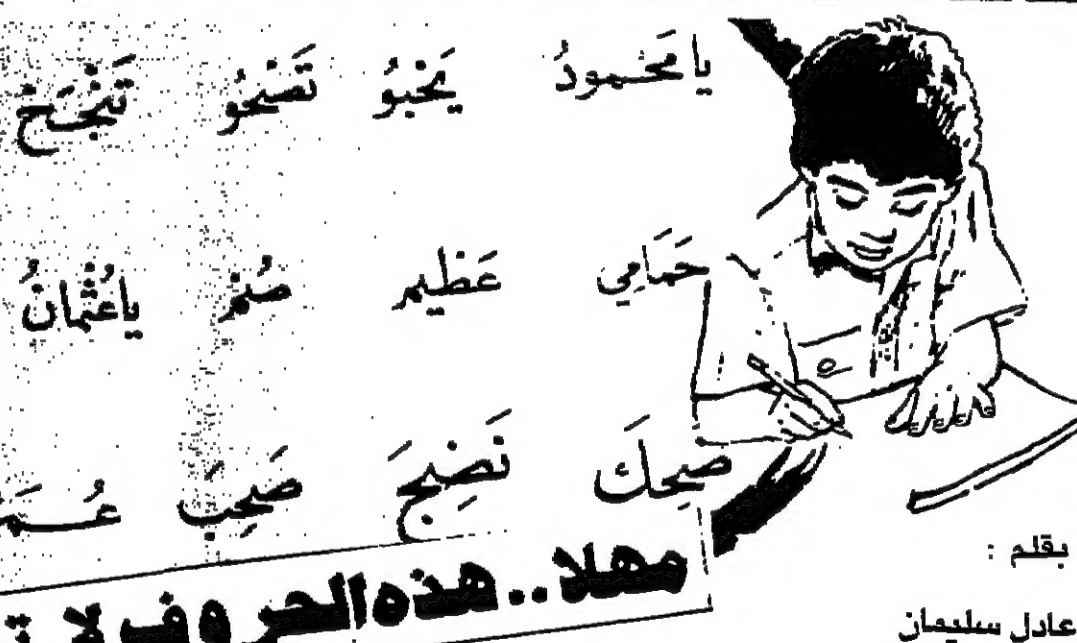 يا مَحْمودُ يَحْبُو تَصْحُو تَنْجَحْ
حَمَامِي عَظِيم صُمْ يا عُثْمانُ
ضحِكَ نَضِجَ صَحِبَ
مهلا .. هذه الحروف لا
بقلم :
عادل سليمان